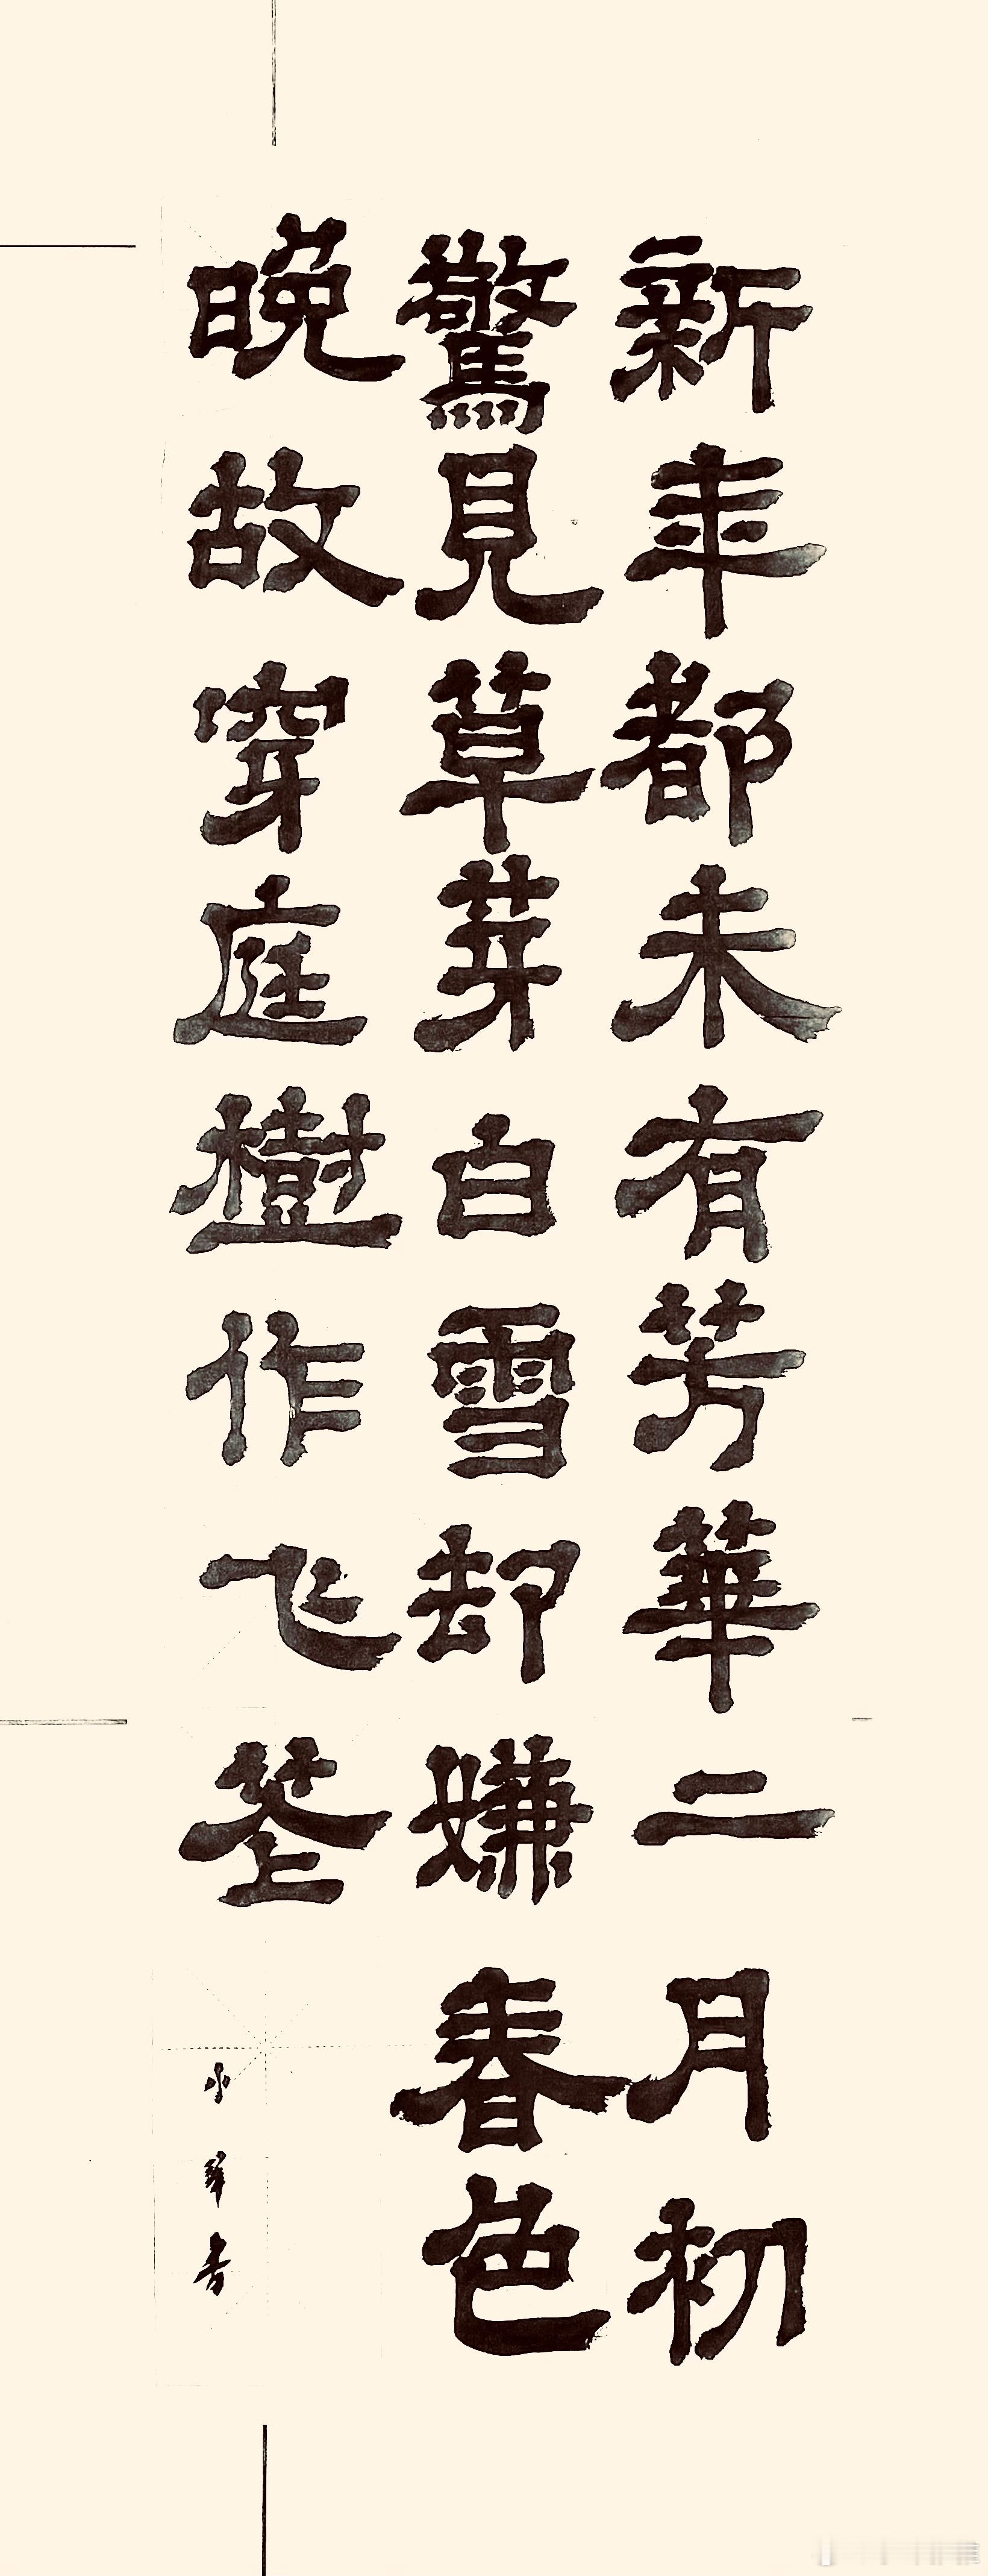 新年都未有芳華二月初
驚見草芽白雪却嫌春色
晚故穿庭樹作飞花
小 書